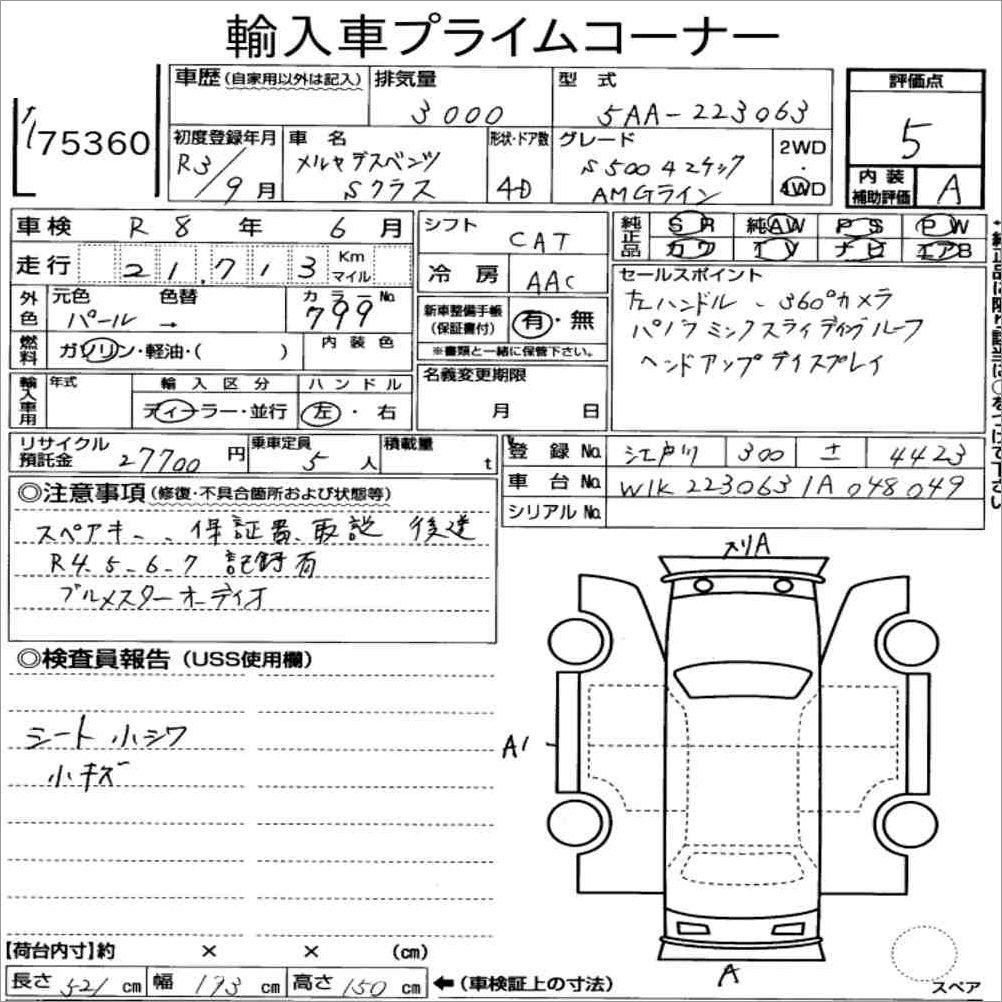 輸入車プライムコーナー
75360
車歴(自家用以外は記入)
排気量
3000
型 式
5AA-223063
評価点
5
初度登録年月
R3/9月
車 名
メルセデスベンツ
Sクラス
形状・ドア数
4D
グレード
S500 4マチック
AMGライン
2WD
・
4WD
内 装
補助評価
A
車検 R 8 年 6 月
走行 21,713 Km
マイル
外色
元色 色替
パール →
カラーNo
799
燃料
ガソリン・軽油・( )
内 装 色
輸入車用
年式
輸 入 区 分
ディーラー・並行
ハ ン ド ル
左・右
シフト
CAT
冷 房
AAC
新車整備手帳
(保証書付)
有・無
※書類と一緒に保管下さい。
名義変更期限
月 日
純正品
SR 純AW PS PW
カワ TV ナビ エアB
セールスポイント
左ハンドル、360°カメラ
パノラミックスライディングルーフ
ヘッドアップディスプレイ
リサイクル
預託金
27700 円
乗車定員
5 人
積載量
t
登 録 No.
江戸川 300 4423
車 台 No.
W1K2230631A048049
シリアルNo.
◎注意事項(修復・不具合箇所および状態等)
スペアキー、保証書、取説 後送
R4.5-6-7 記録有
ブルメスターオーディオ
◎検査員報告(USS使用欄)
シート小シワ
小キズ
スリA
A1
A
スペア
【荷台内寸】約 × × (cm)
長さ 521 cm 幅 193 cm 高さ 150 cm ←(車検証上の寸法)